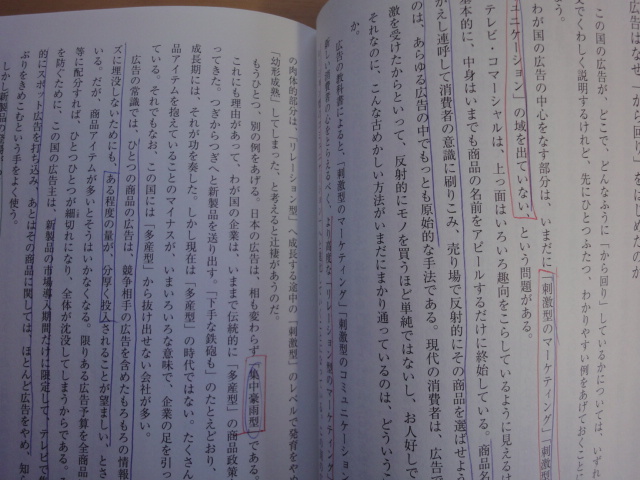 この国の広告が、どこで、どんなふうに「から回り」しているかについては、いずれ
文でくわしく説明するけれど、先にひとつふたつ、わかりやすい例をあげておくことに
わが国の広告の中心をなす部分は、いまだに「刺激型のマーケティング」「刺激型
ュニケーション」の域を出ていない、という問題がある。
テレビ・コマーシャルは、上っ面はいろいろ趣向をこらしているように見えるけ
基本的に、中身はいまでも商品の名前をアピールするだけに終始している。商品名
かえし連呼して消費者の意識に刷りこみ、売り場で反射的にその商品を選ばせよう
のは、あらゆる広告の中でもっとも原始的な手法である。現代の消費者は、広告で
激を受けたからといって、反射的にモノを買うほど単純ではないし、お人好しで
それなのに、こんな古めかしい方法がいまだにまかり通っているのは、どういうこ
か。
広告の教科書によると、「刺激型のマーケティング」「刺激型のコミュニケーション
新しい消費者の心をとらえるべく、より高度な「リレーション型のマーケティング」
の肉体的部分は、「リレーション型」へ成長する途中の「刺激型」のレベルで発育をや
「幼形成熟」してしまった、と考えると辻褄があうのだ。
もうひとつ、別の例をあげる。日本の広告は、相も変わらず「集中豪雨型」である。
これにも理由があって、わが国の企業は、いままで伝統的に「多産型」の商品政策
ってきた。つぎからつぎへと新製品を送り出す。「下手な鉄砲も」のたとえどおり、
成長期には、それが功を奏した。しかし現在は「多産型」の時代ではない。たくさん
品アイテムを抱えていることのマイナスが、いまいろいろな意味で、企業の足を引っ
ている。それでもなお、この国には「多産型」から抜け出せない会社が多い。
広告の常識では、ひとつの商品の広告は、競争相手の広告を含めたもろもろの情報
ズに埋没しないためにも、「ある程度の量が、分厚く投入されることが望ましい」とさ
いる。だが、商品アイテムが多いとそうはいかなくなる。限りある広告予算を全商品
等に配分すれば、ひとつひとつが細切れになり、全体が沈没してしまうからである。そ
を防ぐために、この国の広告主は、新製品の市場導入期間だけに限定して、テレビで集
的にスポット広告を打ち込み、あとはその商品に関しては、ほとんど広告をやめ、知ら
ぷりをきめこむという手をよく使う。
しかし新製品の